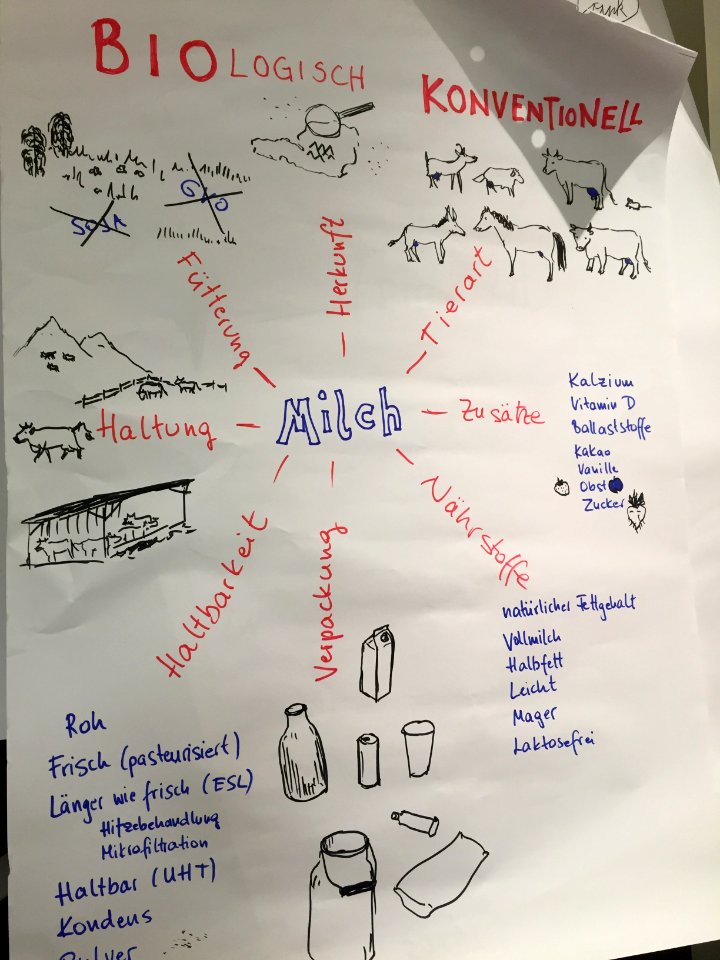 BIOLOGISCH
KONVENTIONELL
SOJA
GMO
Fütterung
Herkunft
Tierart
Haltung
Milch
Zusätze
Kalzium
Vitamin D
Ballaststoffe
Kakao
Vanille
Obst
Zucker
Haltbarkeit
Verpackung
Nährstoffe
natürlicher Fettgehalt
Vollmilch
Halbfett
Leicht
Mager
Laktosefrei
Roh
Frisch (pasteurisiert)
Länger wie frisch (ESL)
Hitzebehandlung
Mikrofiltration
Haltbar (UHT)
Kondens
Pulver